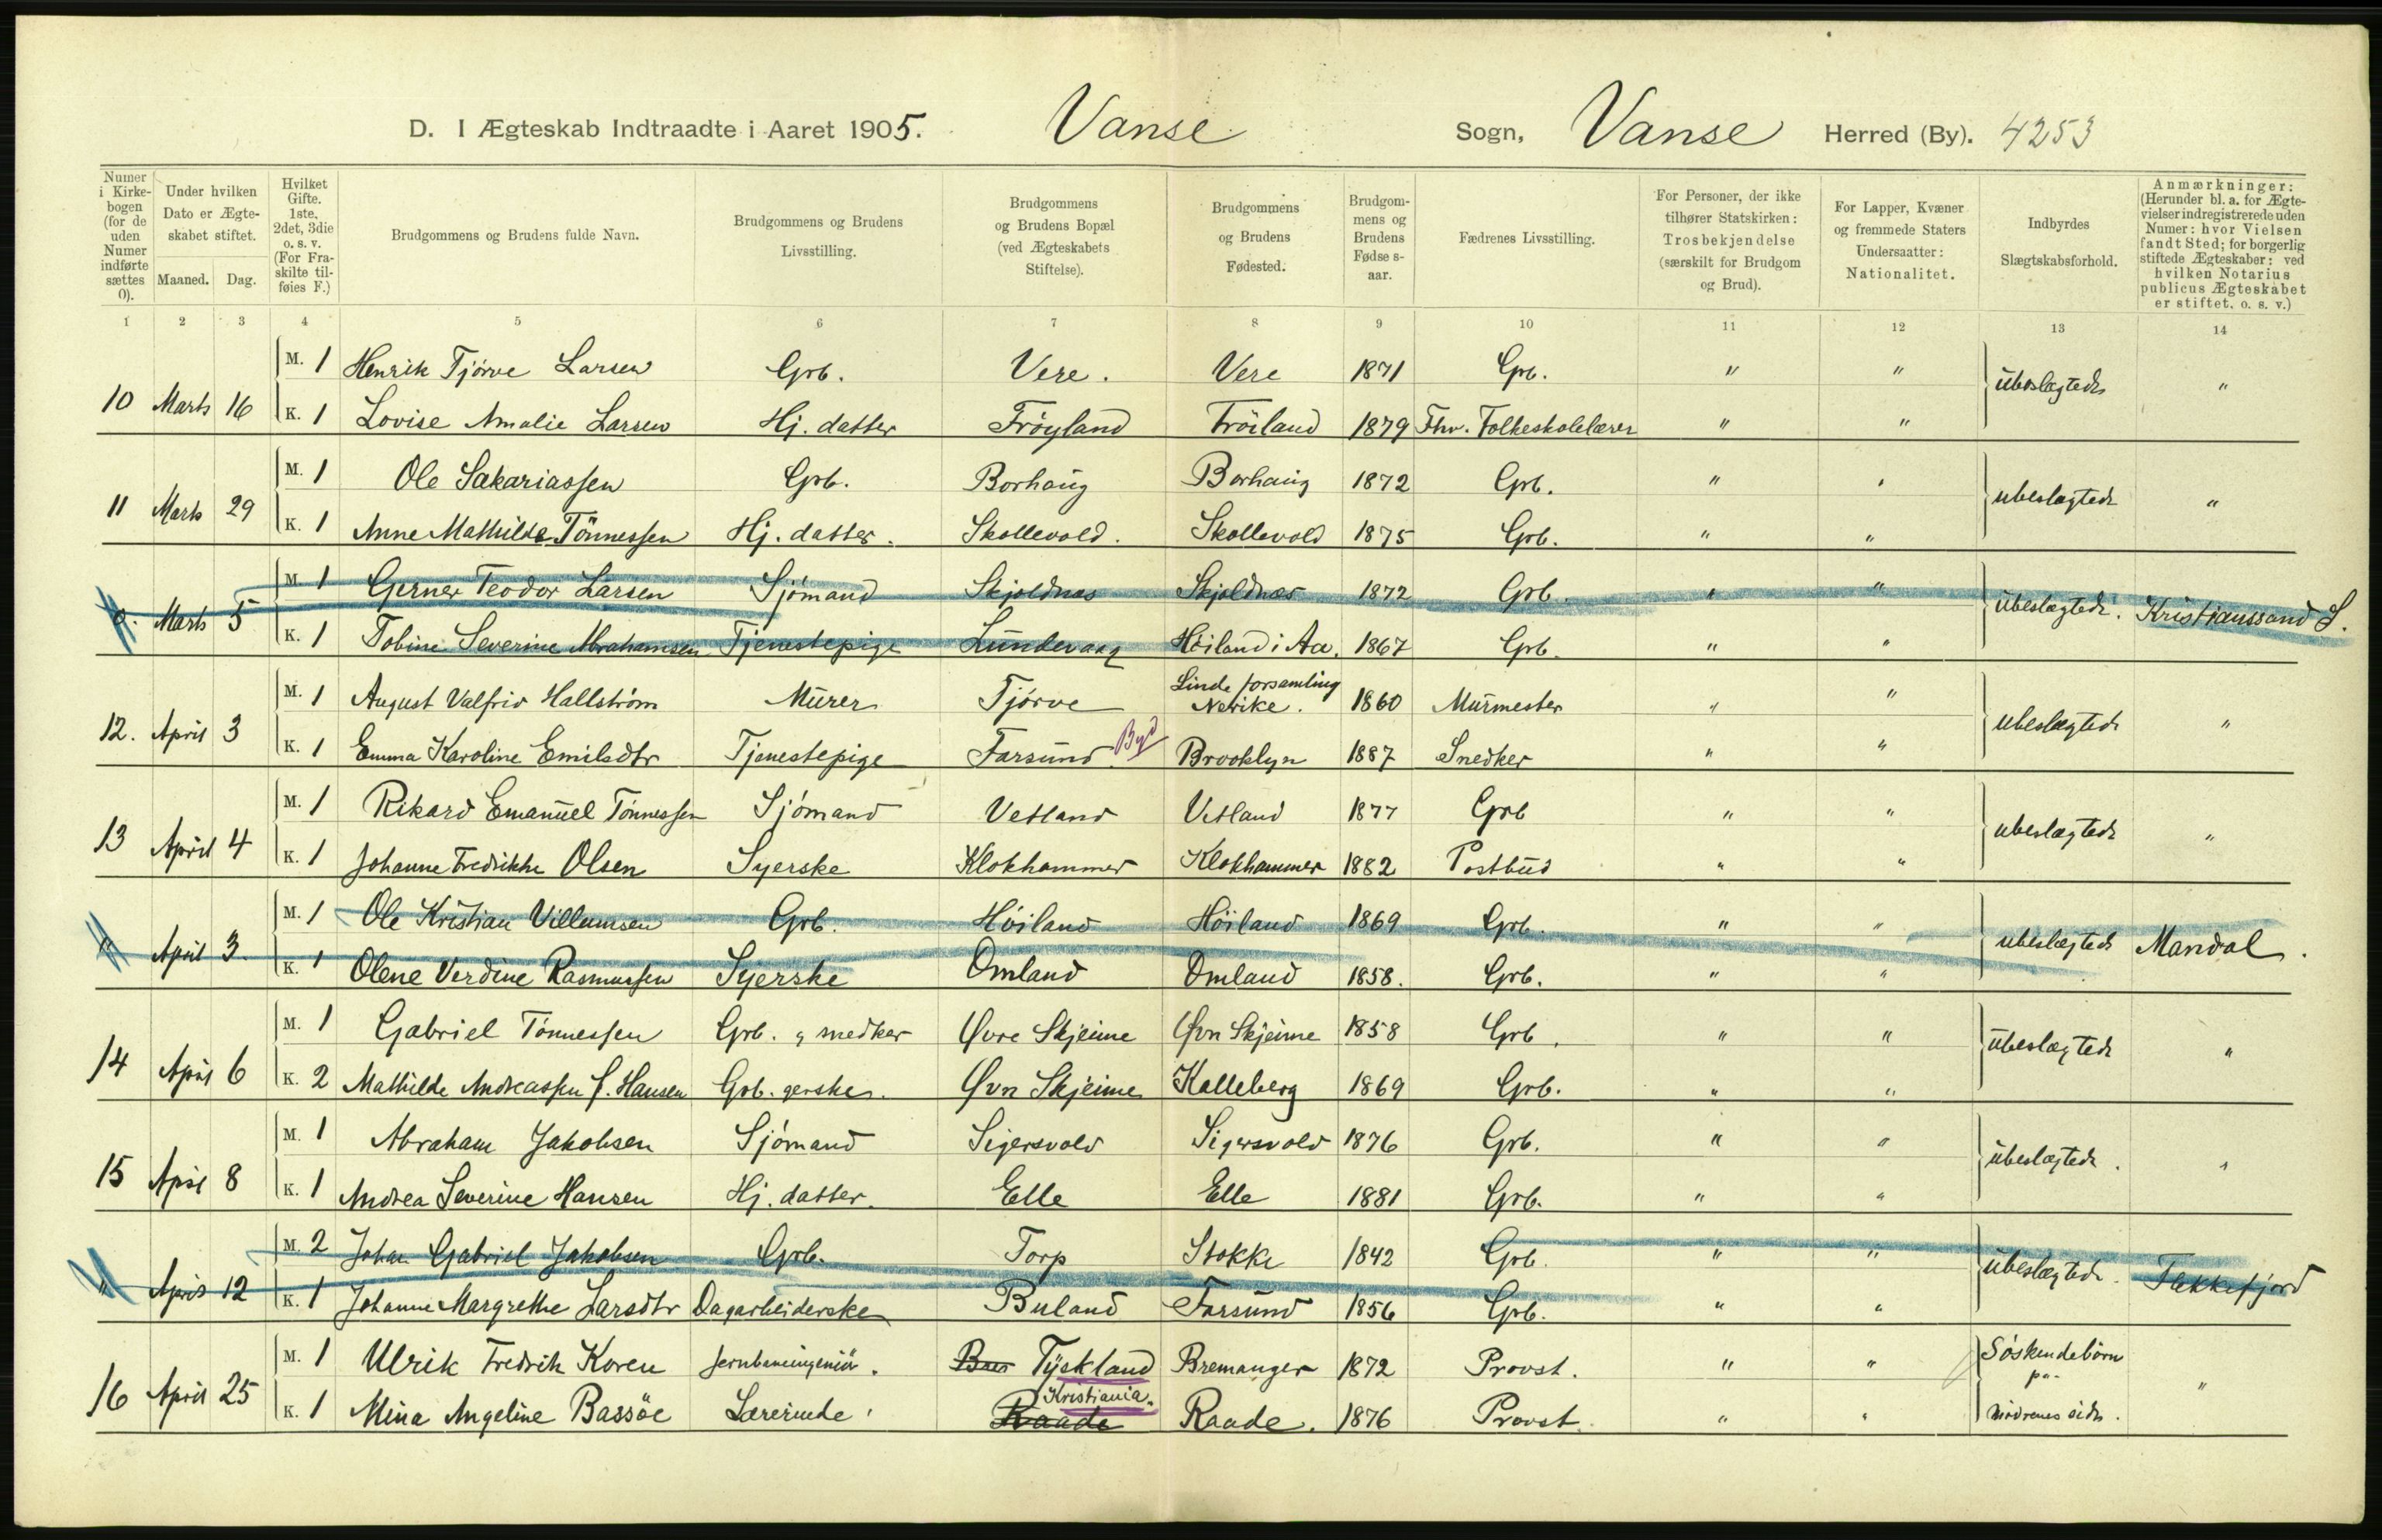 D. I Ægteskab Indtraadte i Aaret 1905. Vanse Sogn, Vanse Herred (By). 4253
Numer i Kirkebogen (for de uden Numer indførte sættes 0).
Under hvilken Dato er Ægteskabet stiftet.
Maaned. Dag.
Hvilket Gifte. 1ste, 2det, 3die o. s. v. (For Fraskilte tilføies F.)
Brudgommens og Brudens fulde Navn.
Brudgommens og Brudens Livsstilling.
Brudgommens og Brudens Bopæl (ved Ægteskabets Stiftelse).
Brudgommens og Brudens Fødested.
Brudgommens og Brudens Fødse s-aar.
Fædrenes Livsstilling.
For Personer, der ikke tilhører Statskirken: Trosbekjendelse (særskilt for Brudgom og Brud).
For Lapper, Kvæner og fremmede Staters Undersaatter: Nationalitet.
Indbyrdes Slægtskabsforhold.
Anmærkninger: (Herunder bl. a. for Ægtevielser indregistrerede uden Numer: hvor Vielsen fandt Sted; for borgerlig stiftede Ægteskaber: ved hvilken Notarius publicus Ægteskabet er stiftet. o. s. v.)
1 2 3 4 5 6 7 8 9 10 11 12 13 14
M. 1 Henrik Tjörve Larsen Grb. Vere. Vere 1871 Grb. " "
10 Marts 16 ubeslægtede "
K. 1 Lovise Amalie Larsen Hj. datter Fröyland Fröiland 1879 Fhv. Folkeskolelærer " "
M. 1 Ole Sakariassen Grb. Borhaug Borhaug 1872 Grb. " "
11 Marts 29 ubeslægtede "
K. 1 Anne Mathilde Tönnessen Hj. datter. Skollevold. Skollevold 1875 Grb. " "
M. 1 Gerner Teodor Larsen Sjömand Skjoldnæs Skjoldnæs 1872 Grb. " "
0. Marts 5 ubeslægtede. Kristianssand S.
K. 1 Tobine Severine Abrahamsen Tjenestepige Lundevaag Höiland i Aa. 1867 Grb. " "
M. 1 August Valfrid Hallström Murer Tjörve Linde forsamling Nerike. 1860 Murmester " "
12. April 3 ubeslægtede "
K. 1 Emma Karoline Emilsdtr Tjenestepige Farsund. By Brooklyn 1887 Snedker " "
M. 1 Rikard Emanuel Tönnessen Sjömand Vetland Vetland 1877 Grb " "
13 April 4 ubeslægtede "
K. 1 Johanne Fredrikke Olsen Syerske Klokhammer Klokhammer 1882 Postbud " "
M. 1 Ole Kristian Villumsen Grb. Höiland Höiland 1869 Grb. " "
" April 3. ubeslægtede Mandal.
K. 1 Olene Verdine Rasmussen Syerske Omland Omland 1858. Grb. " "
M. 1 Gabriel Tönnessen Grb. & snedker Øvre Skjeime Øvre Skjeime 1858 Grb. " "
14 April 6 ubeslægtede "
K. 2 Mathilde Andreassen f. Hansen Grb. gerske. Øvre Skjeime Kalleberg 1869 Grb. " "
M. 1 Abraham Jakobsen Sjömand Sigersvold Sigersvold 1876 Grb. " "
15 April 8 ubeslægtede. "
K. 1 Andrea Severine Hansen Hj. datter. Elle Elle 1881 Grb. " "
M. 2 Johan Gabriel Jakobsen Grb. Torp Stokke 1842 Grb. " "
" April 12 ubeslægtede. Flekkefjord
K. 1 Johanne Margrethe Larsdtr Dagarbeiderske Buland Farsund 1856 Grb. " "
M. 1 Ulrik Fredrik Koren Jernbaneingeniör. Tyskland Bremanger 1872 Provst. " " Söskendebörn
16 April 25 paa "
Kristiania.
K. 1 Mina Angeline Bassöe Lærerinde. Raade Raade. 1876 Provst. " " mödrenes side.